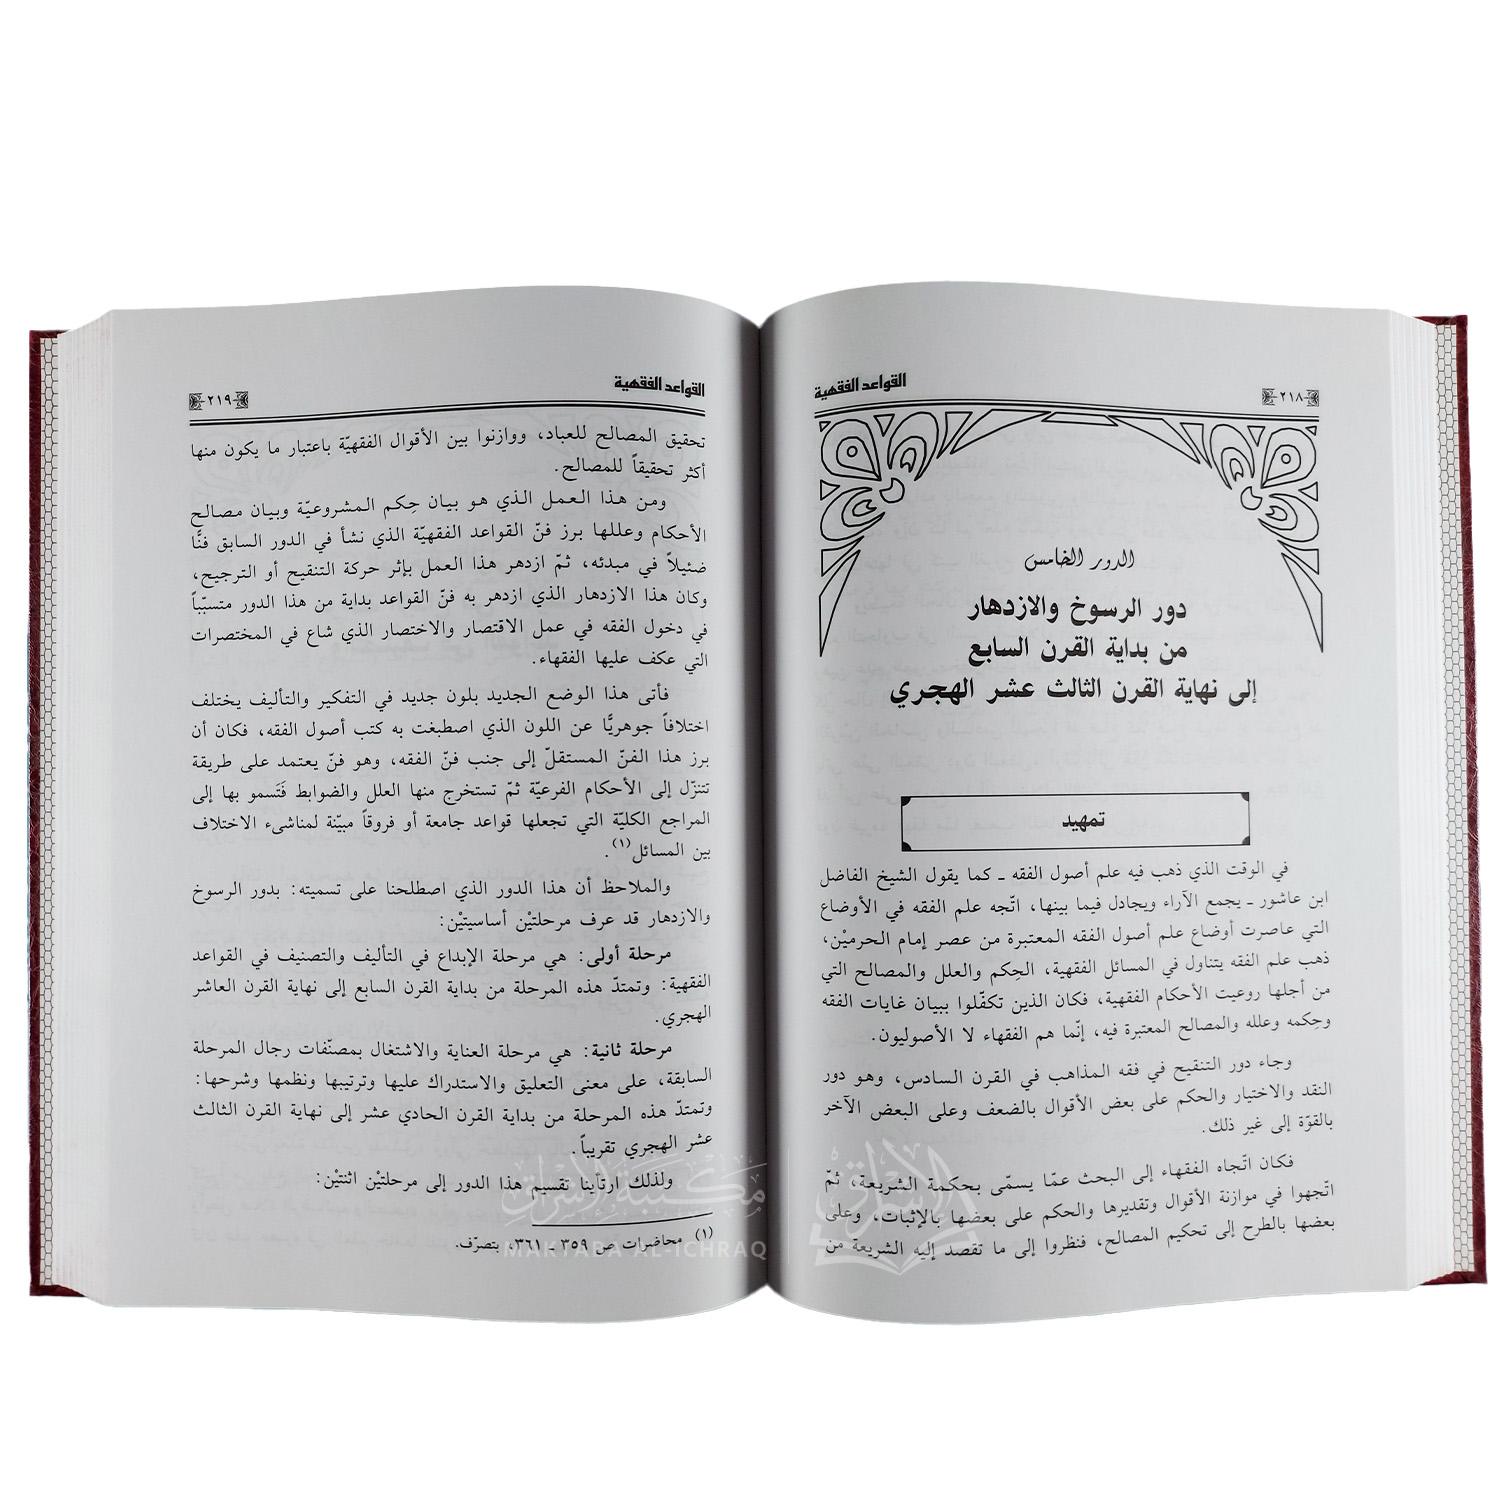 القواعد الفقهية
٢١٨
الدور الخامس
دور الرسوخ والازدهار
من بداية القرن السابع
إلى نهاية القرن الثالث عشر الهجري
تمهيد
في الوقت الذي ذهب فيه علم أصول الفقه ـ كما يقول الشيخ الفاضل
ابن عاشور ـ يجمع الآراء ويجادل فيما بينها، اتّجه علم الفقه في الأوضاع
التي عاصرت أوضاع علم أصول الفقه المعتبرة من عصر إمام الحرميْن،
ذهب علم الفقه يتناول في المسائل الفقهية، الحِكم والعلل والمصالح التي
من أجلها روعيت الأحكام الفقهية، فكان الذين تكفّلوا ببيان غايات الفقه
وحِكمه وعلله والمصالح المعتبرة فيه، إنّما هم الفقهاء لا الأصوليون.
وجاء دور التنقيح في فقه المذاهب في القرن السادس، وهو دور
النقد والاختيار والحكم على بعض الأقوال بالضعف وعلى البعض الآخر
بالقوّة إلى غير ذلك.
فكان اتّجاه الفقهاء إلى البحث عمّا يسمّى بحكمة الشريعة، ثمّ
اتّجهوا في موازنة الأقوال وتقديرها والحكم على بعضها بالإثبات، وعلى
بعضها بالطرح إلى تحكيم المصالح، فنظروا إلى ما تقصد إليه الشريعة من
القواعد الفقهية
٢١٩
تحقيق المصالح للعباد، ووازنوا بين الأقوال الفقهيّة باعتبار ما يكون منها
أكثر تحقيقاً للمصالح.
ومن هذا العمل الذي هو بيان حِكم المشروعيّة وبيان مصالح
الأحكام وعللها برز فنّ القواعد الفقهيّة الذي نشأ في الدور السابق فنًّا
ضئيلاً في مبدئه، ثمّ ازدهر هذا العمل بإثر حركة التنقيح أو الترجيح،
وكان هذا الازدهار الذي ازدهر به فنّ القواعد بداية من هذا الدور متسبّباً
في دخول الفقه في عمل الاقتصار والاختصار الذي شاع في المختصرات
التي عكف عليها الفقهاء.
فأتى هذا الوضع الجديد بلون جديد في التفكير والتأليف يختلف
اختلافاً جوهريًّا عن اللون الذي اصطبغت به كتب أصول الفقه، فكان أن
برز هذا الفنّ المستقلّ إلى جنب فنّ الفقه، وهو فنّ يعتمد على طريقة
تتنزّل إلى الأحكام الفرعيّة ثمّ تستخرج منها العلل والضوابط فتَسمو بها إلى
المراجع الكليّة التي تجعلها قواعد جامعة أو فروقاً مبيّنة لمناشىء الاختلاف
بين المسائل(١).
والملاحظ أن هذا الدور الذي اصطلحنا على تسميته: بدور الرسوخ
والازدهار قد عرف مرحلتيْن أساسيتيْن:
مرحلة أولى: هي مرحلة الإبداع في التأليف والتصنيف في القواعد
الفقهية: وتمتدّ هذه المرحلة من بداية القرن السابع إلى نهاية القرن العاشر
الهجري.
مرحلة ثانية: هي مرحلة العناية والاشتغال بمصنّفات رجال المرحلة
السابقة، على معنى التعليق والاستدراك عليها وترتيبها ونظمها وشرحها:
وتمتدّ هذه المرحلة من بداية القرن الحادي عشر إلى نهاية القرن الثالث
عشر الهجري تقريباً.
ولذلك ارتأينا تقسيم هذا الدور إلى مرحلتيْن اثنتيْن:
(١) محاضرات ص ٣٥٩ ـ ٣٦١، بتصرّف.
مكتبة الإشراق
MAKTABA AL-ICHRAQ
الإشراق